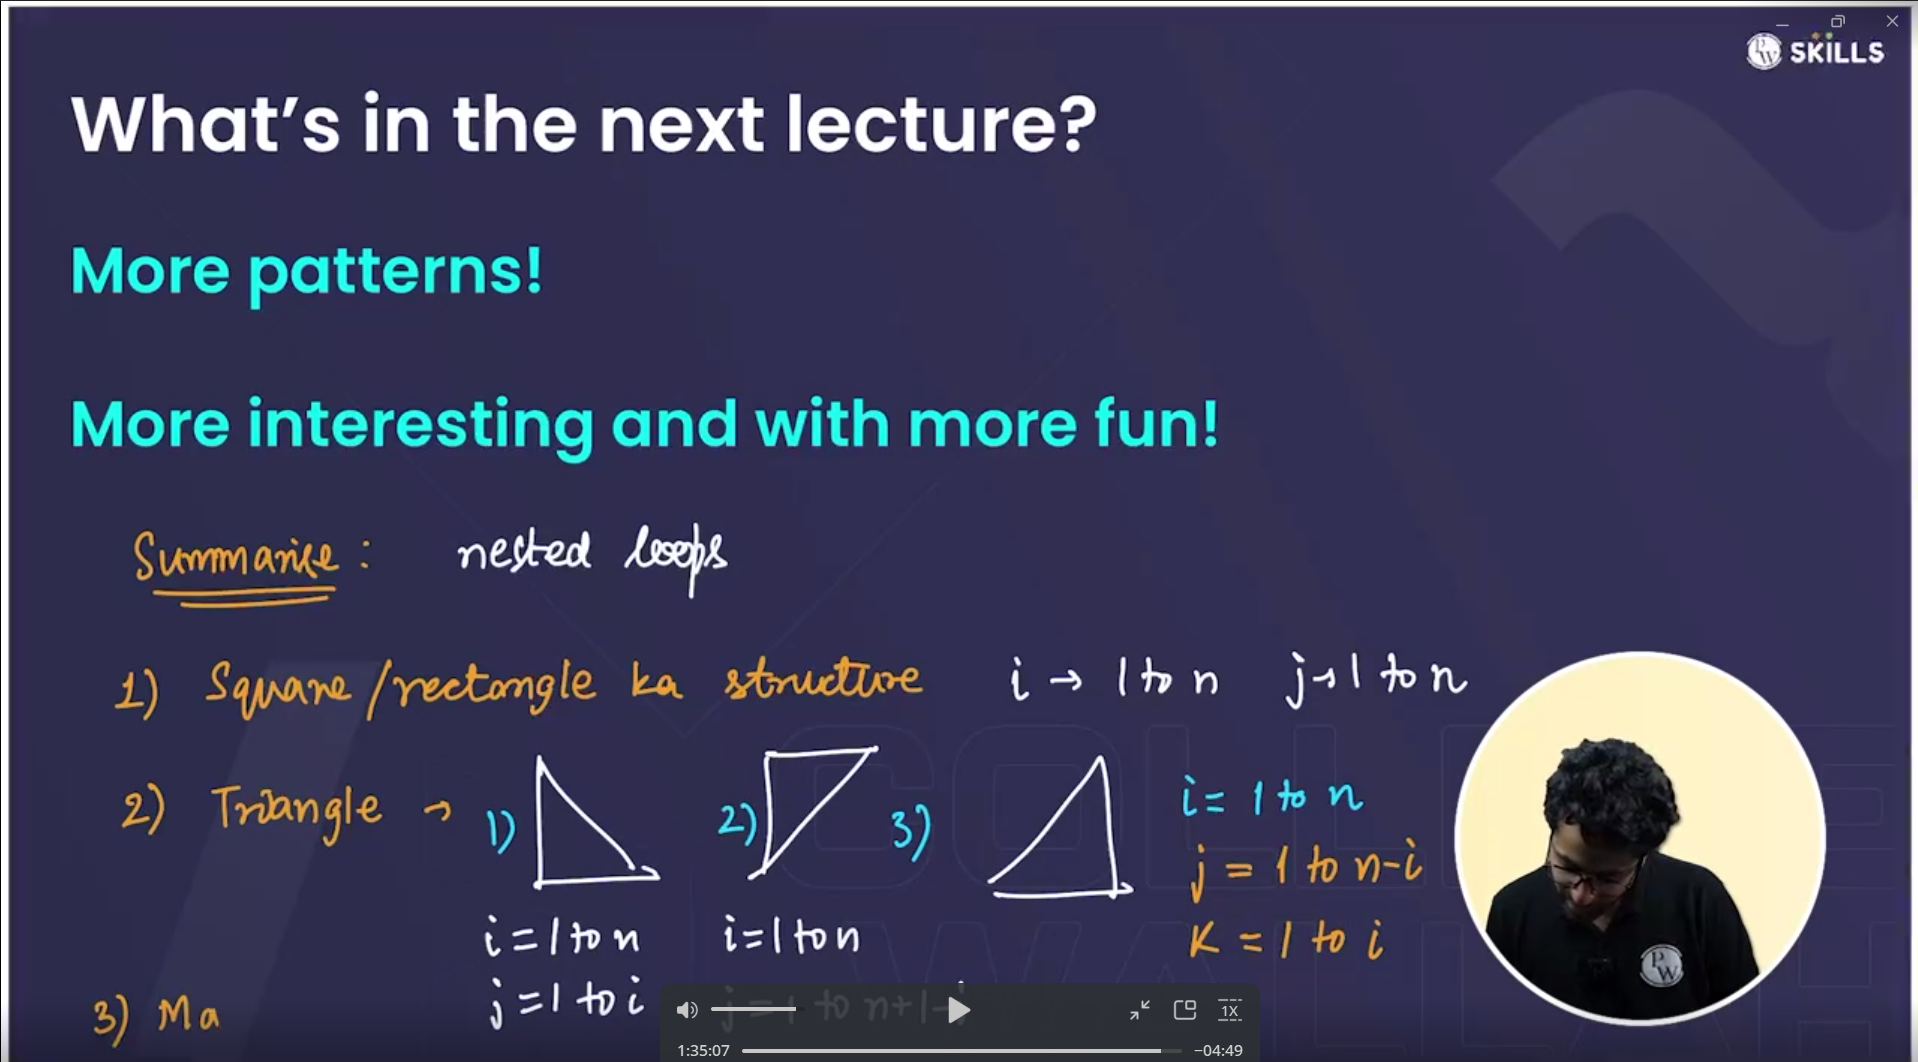 PW SKILLS
What's in the next lecture?
More patterns!
More interesting and with more fun!
Summarise : nested loops
1) Square/rectangle ka structure i → 1 to n j → 1 to n
2) Triangle → 1) 2) 3)
i = 1 to n
j = 1 to n-i
K = 1 to i
i = 1 to n i = 1 to n
j = 1 to i j = 1 to n+1-i
3) Ma
COLLEGE
WALLAH
PW
1X
1:35:07 −04:49